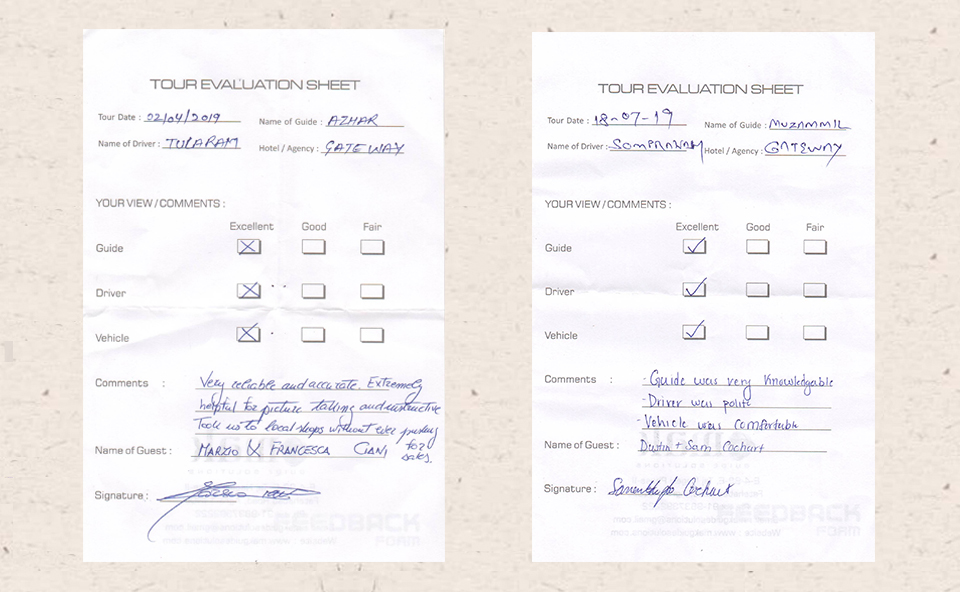 TOUR EVALUATION SHEET
Tour Date : 02/04/2019 Name of Guide : AZHAR
Name of Driver : TULARAM Hotel / Agency : GATEWAY
YOUR VIEW / COMMENTS :
Excellent Good Fair
Guide
Driver
Vehicle
Comments : Very reliable and accurate. Extremely
helpful for picture taking and instructive
Took us to local shops without ever pushing
for sales.
Name of Guest : MARZIO & FRANCESCA CIANI
Signature :
TOUR EVALUATION SHEET
Tour Date : 18-07-19 Name of Guide : MUZAMMIL
Name of Driver : Hotel / Agency : GATEWAY
YOUR VIEW / COMMENTS :
Excellent Good Fair
Guide
Driver
Vehicle
Comments : - Guide was very Knowledgable
- Driver was polite
- Vehicle was comfortable
Name of Guest : Dustin + Sam Cochart
Signature : Cochart
FEEDBACK
FORM
FEEDBACK
FORM